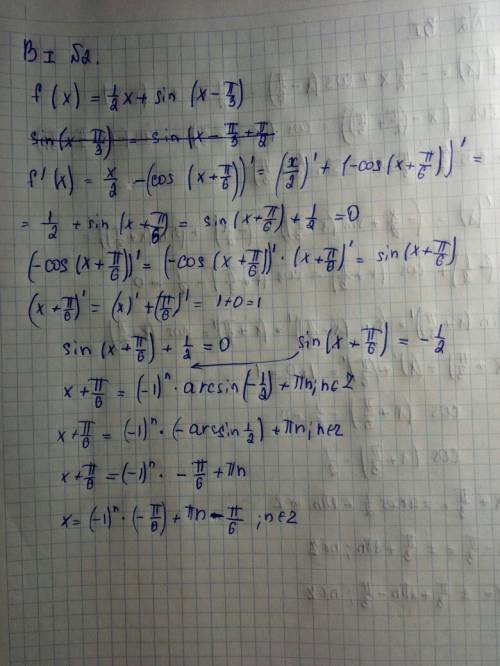 В I №2.
f(x) = 1/2 x + sin (x - π/3)
sin(x - π/3) = sin(x - π/3 + π/2
f'(x) = x/2 - (cos (x + π/6))' = (x/2)' + (-cos(x + π/6))' =
= 1/2 + sin (x + π/6) = sin(x + π/6) + 1/2 = 0
(-cos(x + π/6))' = (-cos (x + π/6))' · (x + π/6)' = sin(x + π/6)
(x + π/6)' = (x)' + (π/6)' = 1 + 0 = 1
sin(x + π/6) + 1/2 = 0 sin(x + π/6) = - 1/2
x + π/6 = (-1)ⁿ · arcsin(-1/2) + πn, n∈Z
x + π/6 = (-1)ⁿ · (-arcsin 1/2) + πn, n∈z
x + π/6 = (-1)ⁿ · - π/6 + πn
x = (-1)ⁿ · (- π/6) + πn - π/6 ; n∈z